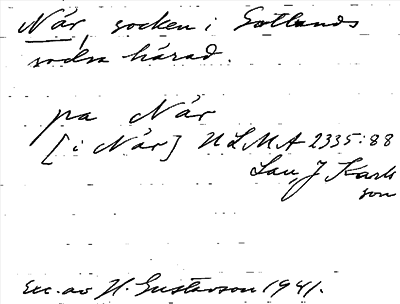 När, socken i Gotlands
södra härad.
pa När
[i När] ULMA 2335:88
Lau, J Karls
son
Exc. av H. Gustavson 1941.